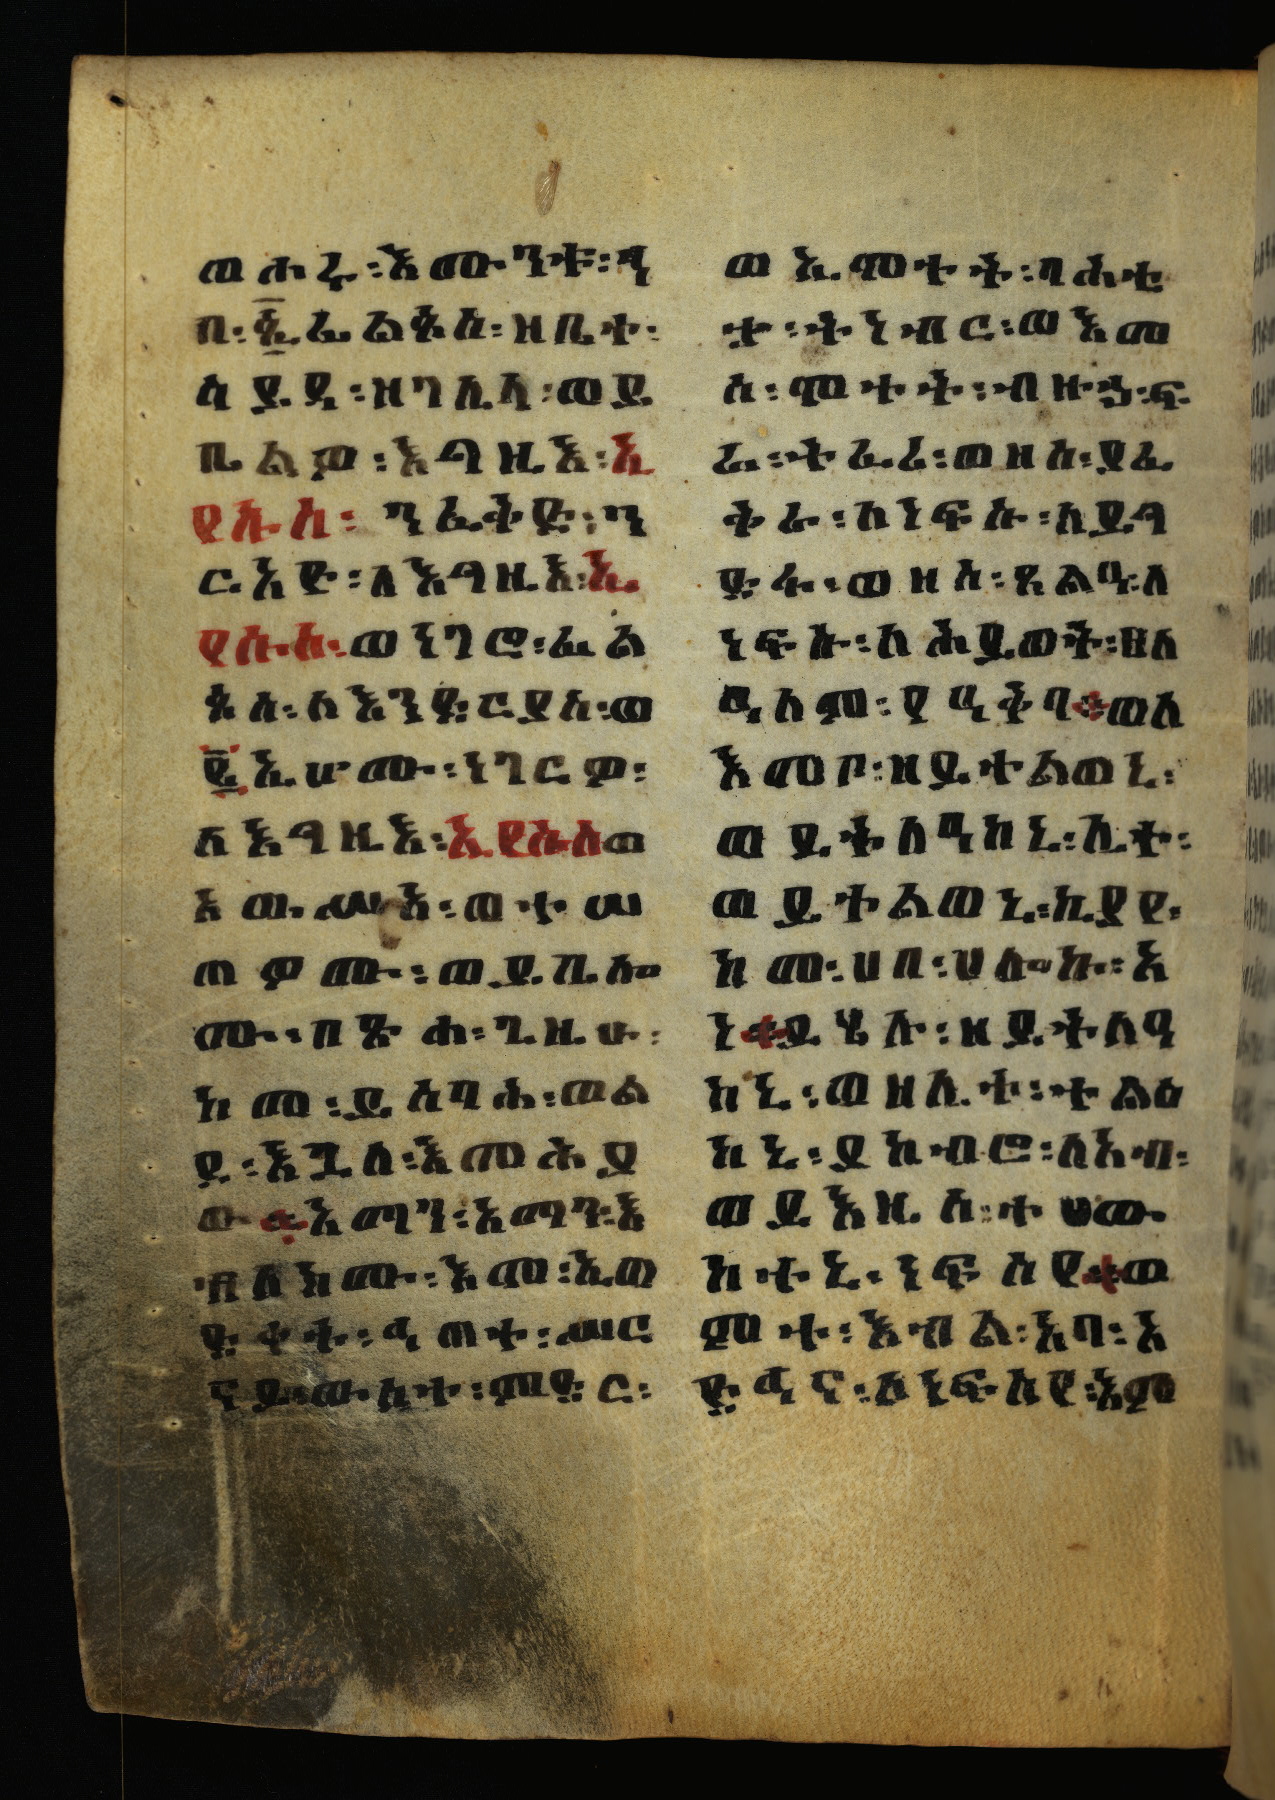 ወሖሩ፡እሙንቱ፡ኀ
በ፡ፊልጶስ፡ዘቤተ፡
ሳይዳ፡ዘገሊላ፡ወይ
ቤልዎ፡እግዚእ፡ኢ
የሱስ፡ንፈቅድ፡ን
ርአይ፡ለእግዚእ፡ኢ
የሱስ፡ወነገሮ፡ፊል
ጶስ፡ለእንድርያስ፡ወ
፪ኢሆሙ፡ነገርዎ፡
ለእግዚእ፡ኢየሱስወ
አውሥአ፡ወተሠ
ጠዎሙ፡ወይቤሎ
ሙ፡በጽሐ፡ጊዜሁ፡
ከመ፡ይሰባሕ፡ወል
ደ፡እጓለ፡እመሕያ
ው፡አማን፡አማን፡እ
ብለክሙ፡እመ፡ኢወ
ድቀት፡ሕጠተ፡ሥር
ናይ፡ውስተ፡ምድር፡
ወኢሞተት፡ባሕቲ
ታ፡ትነብር፡ወእመ
ሰ፡ሞተት፡ብዙኃ፡ፍ
ሬ፡ትፈሪ፡ወዘሰ፡ያፈ
ቅራ፡ለነፍሱ፡ለይግ
ድፋ፡ወዘሰ፡ጸልዓ፡ለ
ነፍሱ፡ለሕይወት፡ዘለ
ዓለም፡የዓቅባ፡ወለ
እመቦ፡ዘይተልወኒ፡
ወይትለዓከኒ፡ሊተ፡
ወይተልወኒ፡ኪያየ፡
ከመ፡ሀበ፡ሀሎኩ፡አ
ነ፡ይሄሉ፡ዘይትለዓ
ከኒ፡ወዘሊተ፡ተልዕ
ከኒ፡ያከብሮ፡ለአብ፡
ወይእዜሰ፡ተሀው
ከተኒ፡ነፍስየ፡ወ
ምተ፡እብል፡አባ፡አ
ድኅና፡ለነፍስየ፡እም